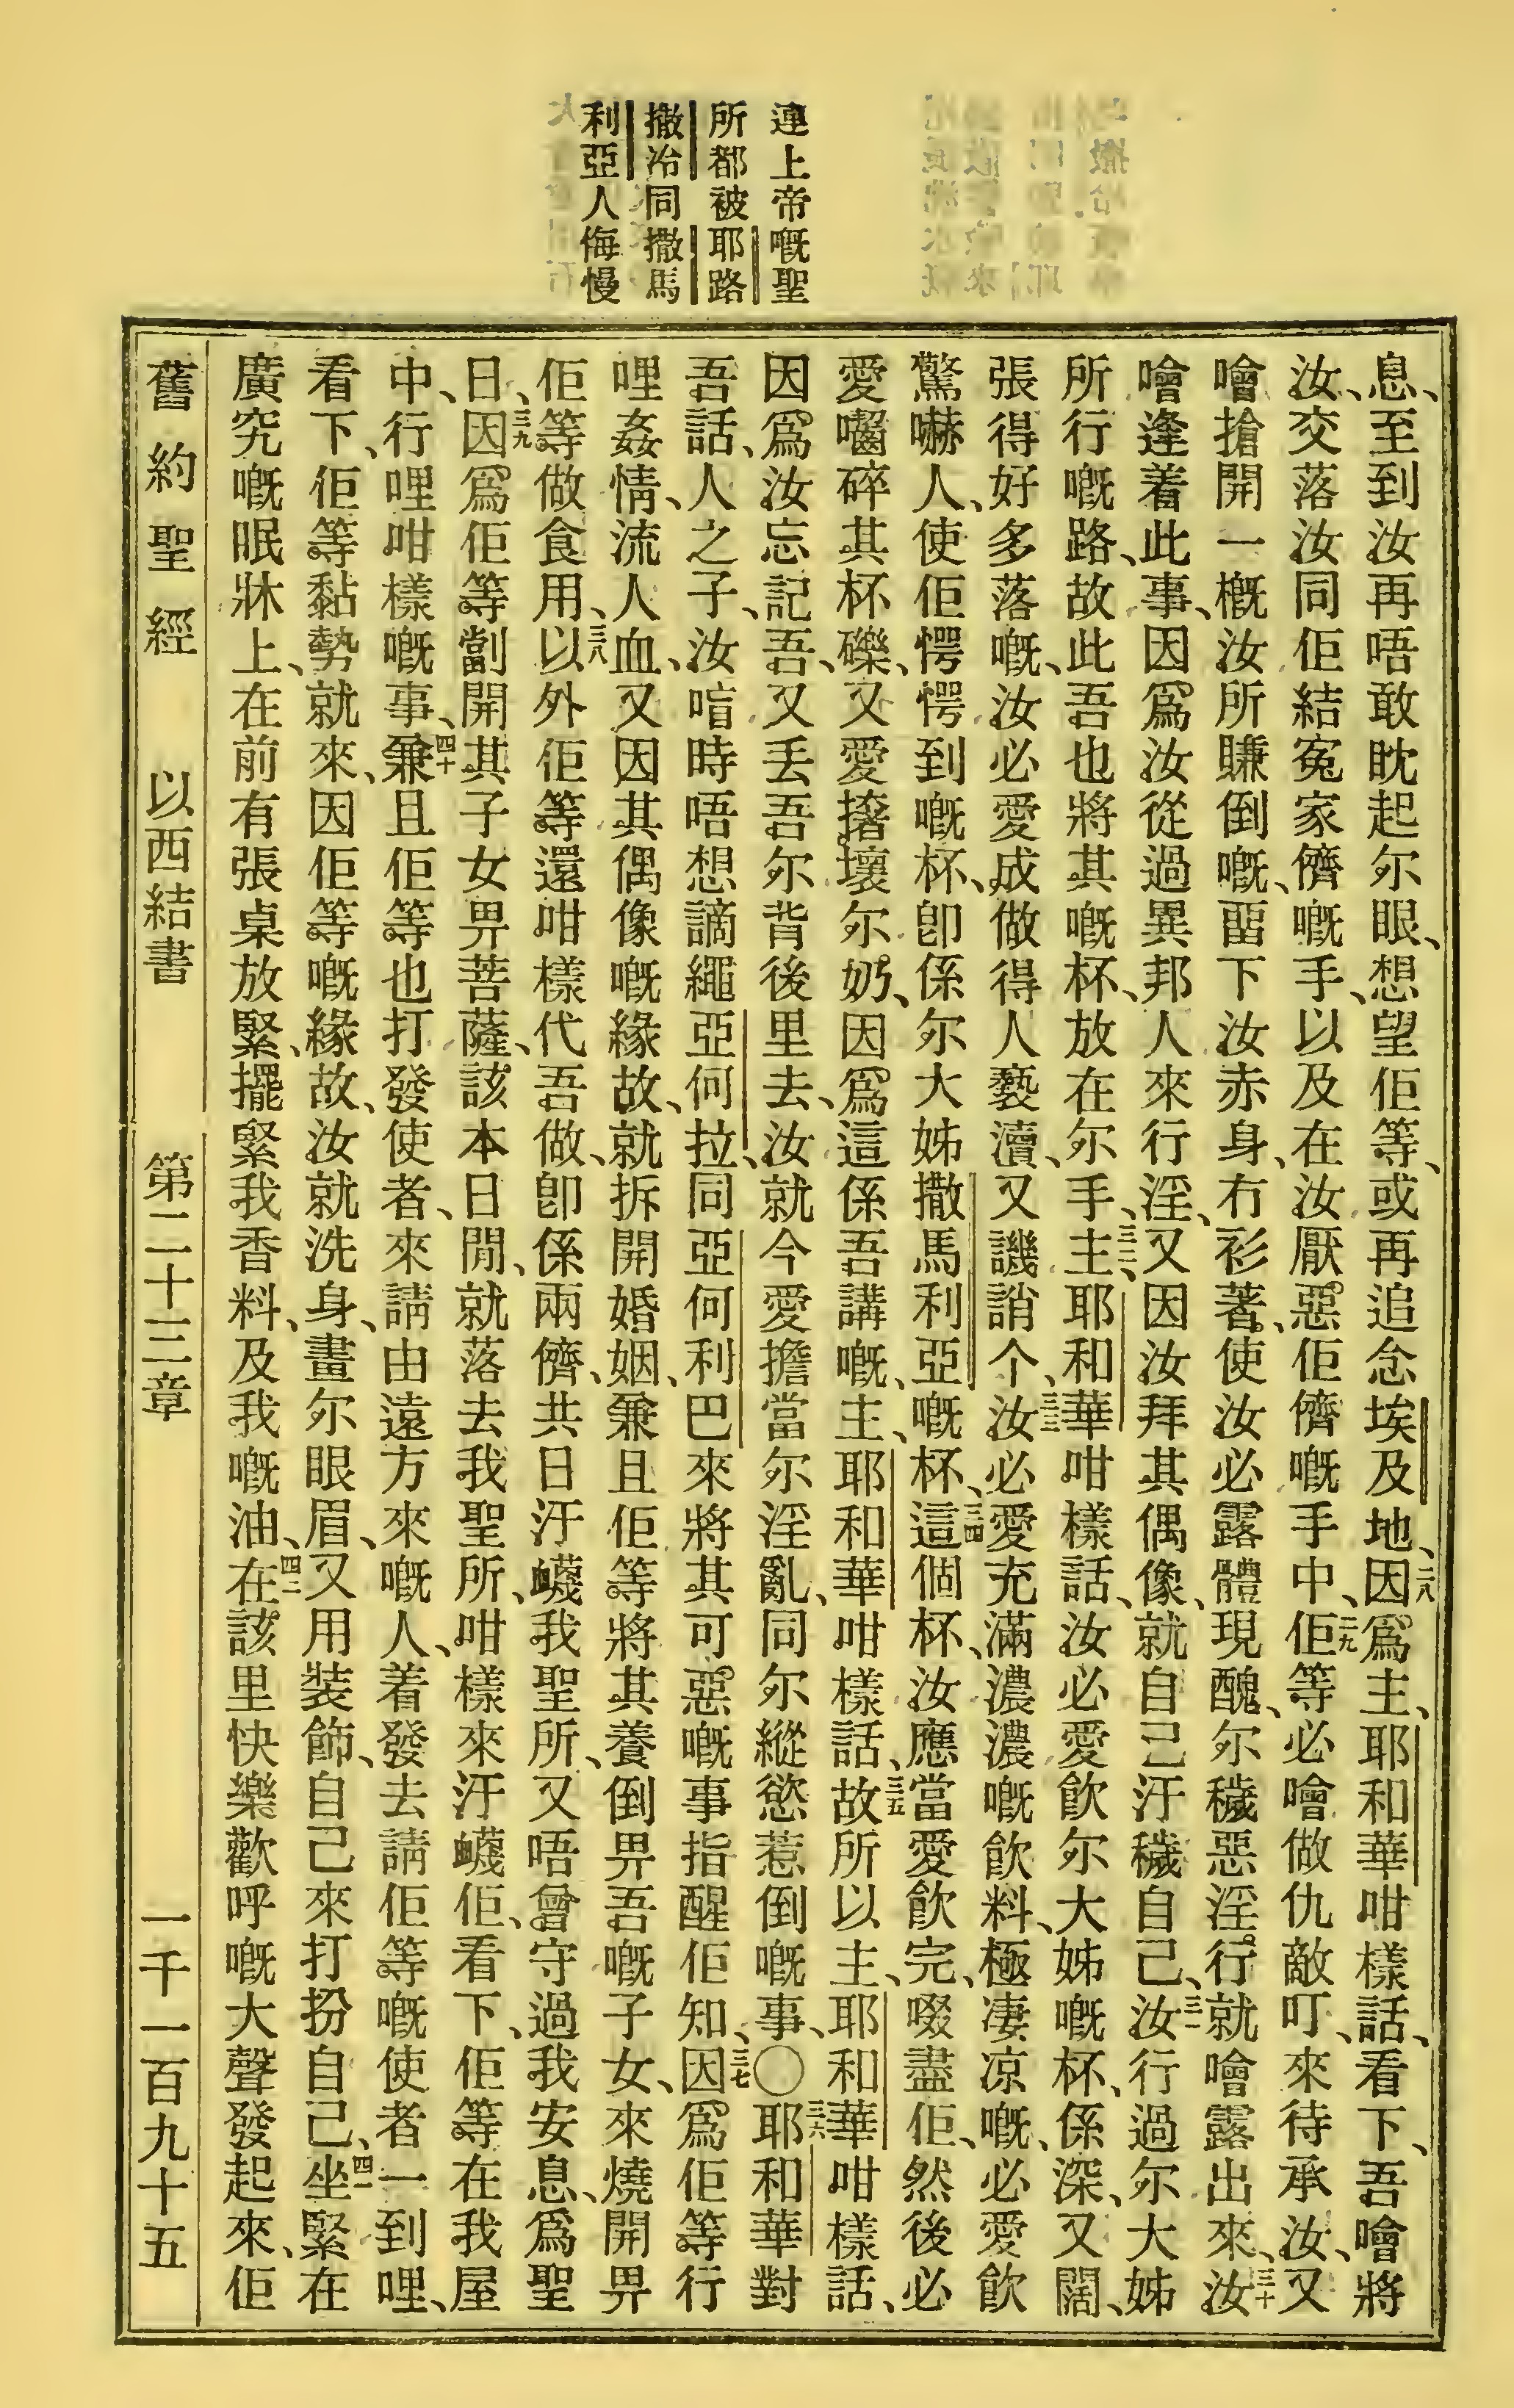 連上帝嘅聖
所都被耶路
撒冶同撒馬
利亞人侮慢
息、至到汝再唔敢眈起尔眼、想望佢等、或再追念埃及地、二八因爲主、耶和華咁樣話、看下、吾噲將
汝、交落汝同佢結寃家儕嘅手、以及在汝厭惡佢儕嘅手中、二九佢等必噲做仇敵叮、來待承汝、又
噲搶開一概汝所賺倒嘅、畱下汝赤身、冇衫著、使汝必露體現醜、尔穢惡淫行就噲露出來、三十汝
噲逢着此事、因爲汝從過異邦人來行淫、又因汝拜其偶像、就自己汙穢自己、三一汝行過尔大姊
所行嘅路、故此吾也將其嘅杯、放在尔手、三二主、耶和華咁樣話、汝必愛飮尔大姊嘅杯、係深、又濶、
張得好多落嘅、汝必愛成做得人褻瀆、又譏誚个、三三汝必愛充滿濃濃嘅飮料、極凄凉嘅、必愛飮
驚嚇人、使佢愕愕到嘅杯、卽係尔大姊撒馬利亞嘅杯、三四這個杯、汝應當愛飮完、啜盡佢、然後必
愛囓碎其杯礫、又愛撦壞尔奶、因爲這係吾講嘅、主、耶和華咁樣話、三五故所以主、耶和華咁樣話、
因爲汝忘記吾、又丢吾尔背後里去、汝就今愛擔當尔淫亂、同尔縱慾惹倒嘅事、〇三六耶和華對
吾話、人之子、汝喑時唔想謫繩亞何拉、同亞何利巴來將其可惡嘅事指醒佢知、三七因爲佢等行
哩姦情、流人血、又因其偶像嘅緣故、就拆開婚姻、兼且佢等將其養倒畀吾嘅子女、來燒開畀
佢等做食用、三八以外佢等還咁樣代吾做、卽係兩儕、共日汙衊我聖所、又唔曾守過我安息、爲聖
日、三九因爲佢等劏開其子女畀菩薩、該本日閒、就落去我聖所、咁樣來汙衊佢、看下、佢等在我屋
中、行哩咁樣嘅事、四十兼且佢等也打發使者、來請由遠方來嘅人、着發去請佢等嘅使者一到哩、
看下、佢等黏勢就來、因佢等嘅緣故、汝就洗身、畫尔眼眉、又用裝飾、自己來打扮自己、四一坐緊在
廣究嘅眠牀上、在前有張桌放緊、擺緊我香料、及我嘅油、四二在該里快樂歡呼嘅大聲發起來、佢
舊約聖經 以西結書 第二十三章 一千一百九十五